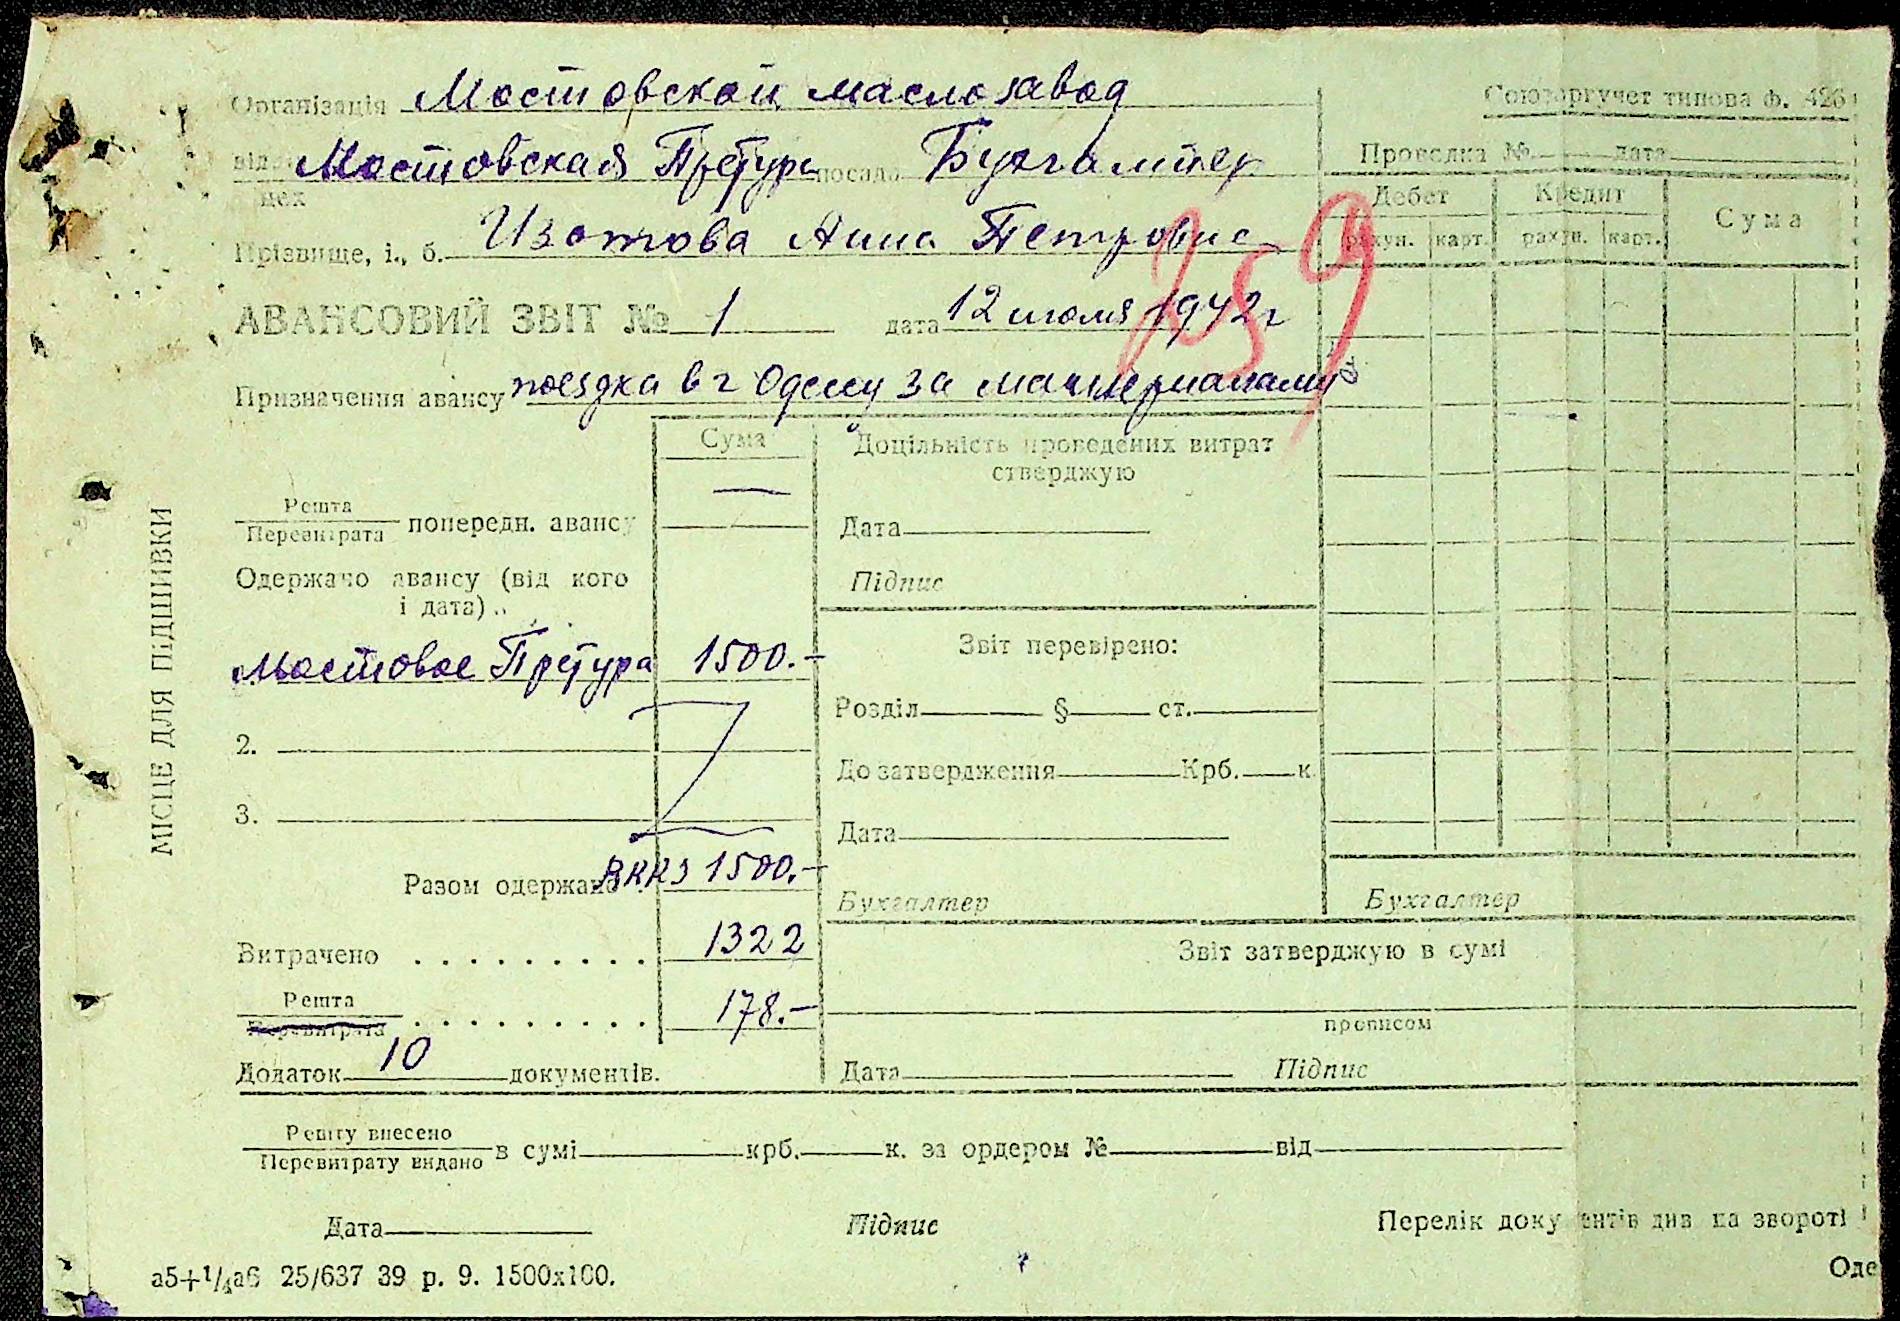 Організація Мостовской маслозавод
Союзоргучет типова ф. 426
Мостовская Претура посада Бухгалтер
цех
Проводка № дата
Дебет Кредит Сума
рахун. карт. рахун. карт.
Прізвище, і., б. Изотова Анна Петровна
259
АВАНСОВИЙ ЗВІТ № 1 дата 12 июля 1942 г
Призначення авансу поездка в г Одессу за материалами
Сума
Доцільність проведених витрат
стверджую
Решта
Перевитрата попередн. авансу —
Дата
Одержано авансу (від кого
і дата)
Підпис
Звіт перевірено:
Мостовое Претура 1500.-
Розділ § ст.
2.
До затвердження Крб. к.
3.
Дата
Разом одержано ВККЗ 1500.-
Бухгалтер
Бухгалтер
Витрачено . . . . . . . . . 1322
Звіт затверджую в сумі
Решта
Перевитрата . . . . . . . . . 178.-
прописом
Додаток 10 документів.
Дата Підпис
Решту внесено
Перевитрату видано в сумі крб. к. за ордером № від
Дата Підпис
Перелік документів див на звороті
а5+¼а6 25/637 39 р. 9. 1500х100.
Оде
МІСЦЕ ДЛЯ ПІДШИВКИ